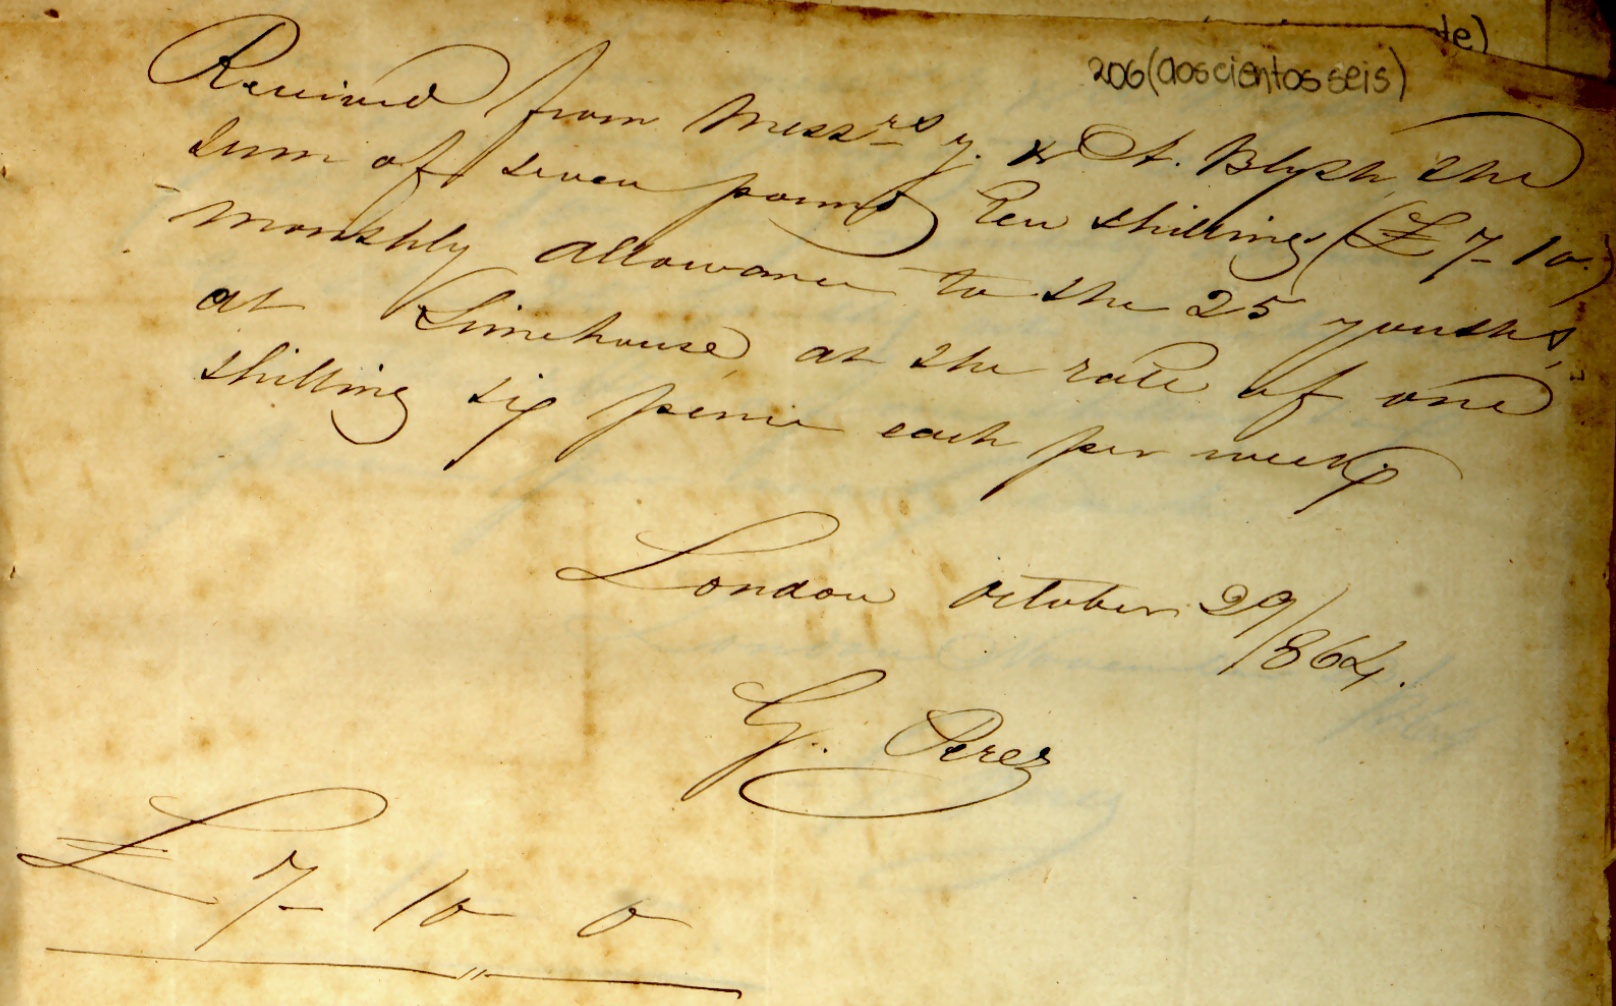 te)
206(doscientos seis)
Received from Messrs J. & A. Blyth, the
sum of seven pound ten shillings (£7-10.)
monthly allowance to the 25 youths,
at Limehouse, at the rate of one
shilling six penie each per week
London October 29/
1864.
G. Perez
£ 7- 10- 0